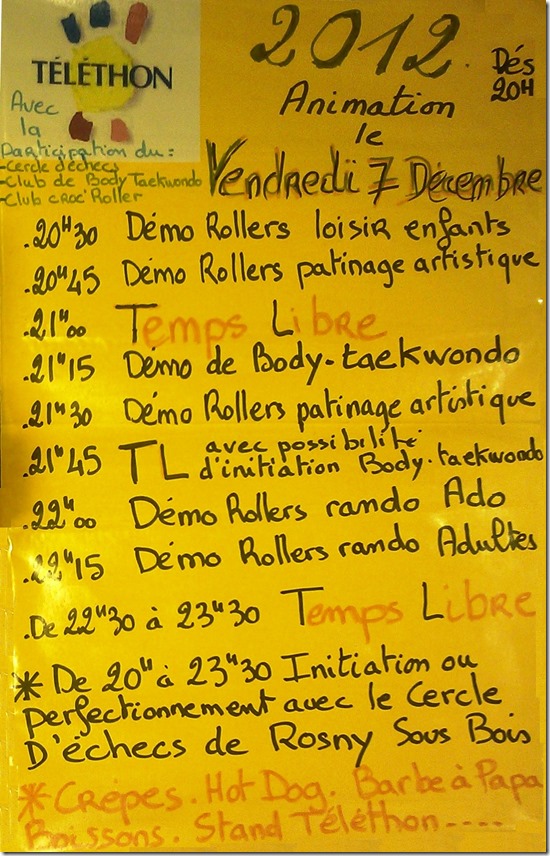 TÉLÉTHON
2012.
Dés
20H
Animation
le
Vendredi 7 Décembre
Avec
la
Participation du :
-Cercle d'échecs
-Club de Body Taekwondo
-Club CROC' Roller
.20H30 Démo Rollers loisir enfants
.20H45 Démo Rollers patinage artistique
.21H00 Temps Libre
.21H15 Démo de Body-taekwondo
.21H30 Démo Rollers patinage artistique
.21H45 TL avec possibilité
d'initiation Body-taekwondo
.22H00 Démo Rollers rando Ado
.22H15 Démo Rollers rando Adultes
.De 22H30 à 23H30 Temps Libre
* De 20H à 23H30 Initiation ou
perfectionnement avec le Cercle
D'échecs de Rosny Sous Bois
* Crêpes. Hot Dog. Barbe à Papa
Boissons. Stand Téléthon ----